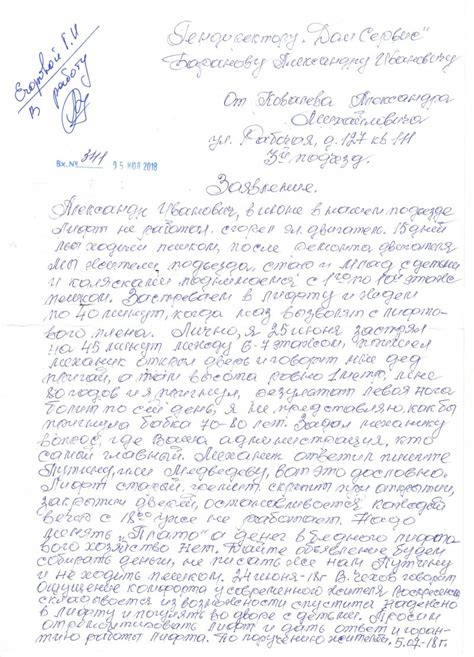 Егоровой Г.И
В работу
Гендиректору "Дом Сервис"
Баранову Александру Ивановичу
От Ковалева Александра
Михайловича
ул. Рабочая, д. 127 кв 111
3й подъезд.
Вх.№ 341 05 ИЮЛ 2018
Заявление.
Александр Иванович, в июне в нашем подъезде
лифт не работал. сгорел эл. двигатель. 15 дней
мы ходили пешком, после ремонта двигателя
мы жители подъезда, стар и млад с детьми
и колясками поднимаемся с 1го по 10й этаж
пешком. Застреваем в лифту и ждем
по 40 минут, когда нас вызволят с лифто-
вого плена. Лично, я 25 июня застрял
на 45 минут между 6-7 этажом, пришел
механик открыл дверь и говорит мне дед
прыгай, а там высота ровно 1 метр, мне
80 годов и я прыгнул, результат левая нога
болит по сей день, я не представляю, как бы
прыгнула бабка 70-80 лет. Задал механику
вопрос, где ваша администрация, кто
самый главный. Механик ответил пишите
Путину, или Медведеву, вот это дословно.
Лифт старый, гремит, скрипит при открытии,
закрытии дверей, останавливается каждый
вечер с 18го уже не работает. Надо
менять "Плато" а денег в бедного лифто-
вого хозяйства нет. Дайте объявление будем
собирать деньги, не писать же нам Путину
и не ходить пешком. 24 июня-18г В. Чехов говорит
Ощущение комфорта у современного жителя Воскресенс
складывается из возможности спуститься надежно
в лифту и погулять во дворе с детьми. Просим
отремонтировать лифт и дать ответ и гаран-
тию работы лифта. По поручению жителей, 5.07-18г.